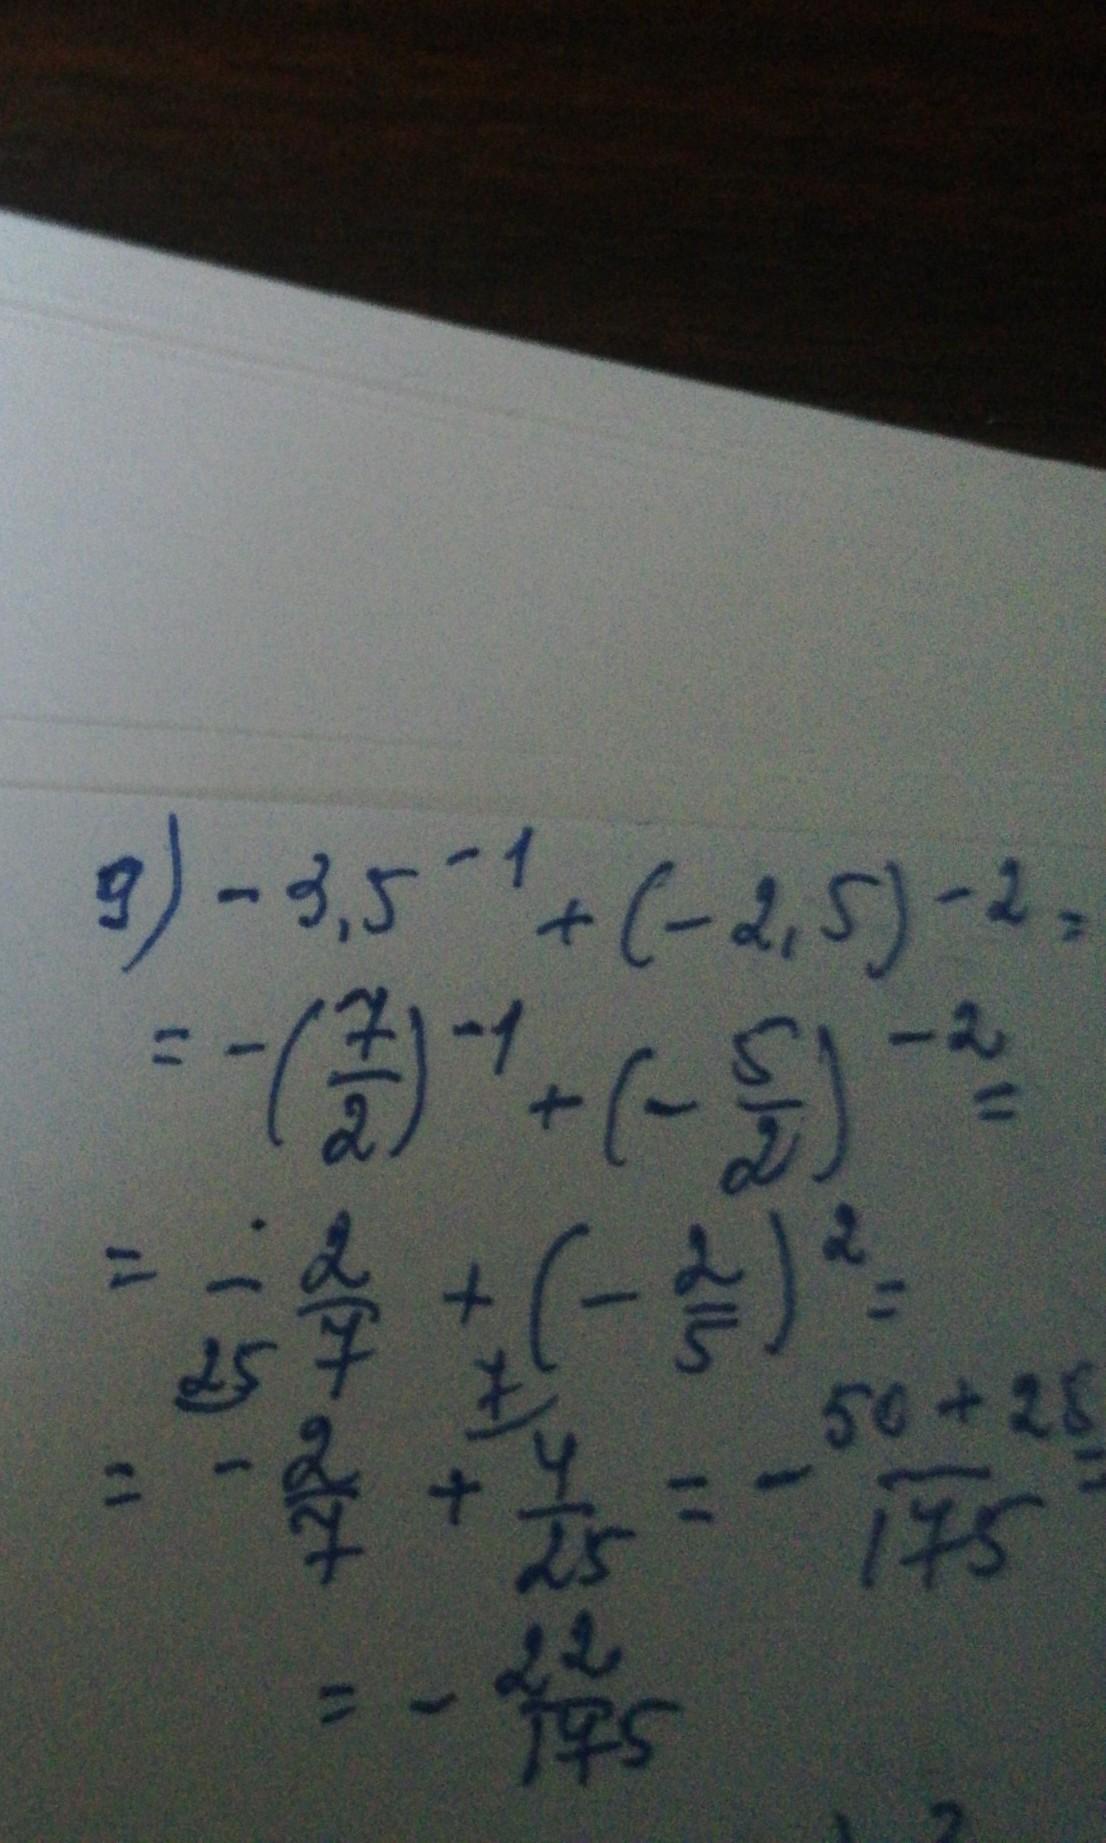 9) - 3,5^-1 + (-2,5)^-2 =
= -(7/2)^-1 + (-5/2)^-2 =
= - 2/7 + (-2/5)^2 =
25 7
= - 2/7 + 4/25 = - 50 + 28/175 =
= - 22/175